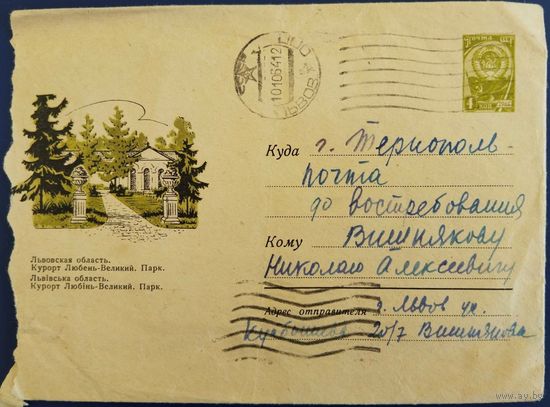 ПОЧТА СССР
4 КОП
СССР
101064 12
ЛЬВОВ
Куда г. Тернополь-
почта
до востребования
Кому Вишнякову
Николаю Алексеевичу
Адрес отправителя г. Львов ул.
Куйбышева 20/7 Вишнякова
Львовская область.
Курорт Любень-Великий. Парк.
Львівська область.
Курорт Любінь-Великий. Парк.
www.ay.by